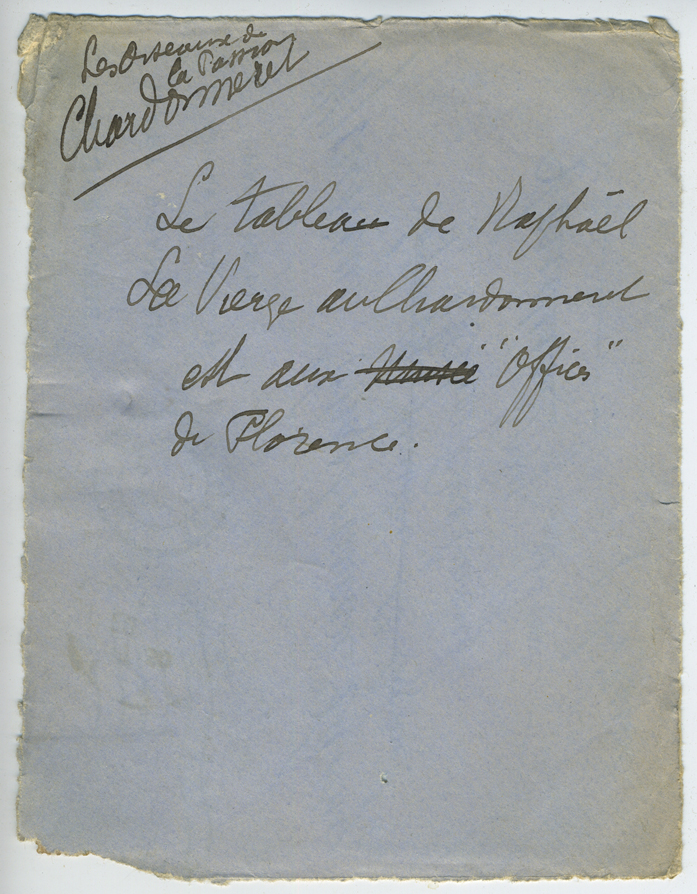 Les Oiseaux de
la Passion
Chardonneret
Le tableau de Raphaël
La Vierge au Chardonneret
est aux Musée "Offices"
de Florence.